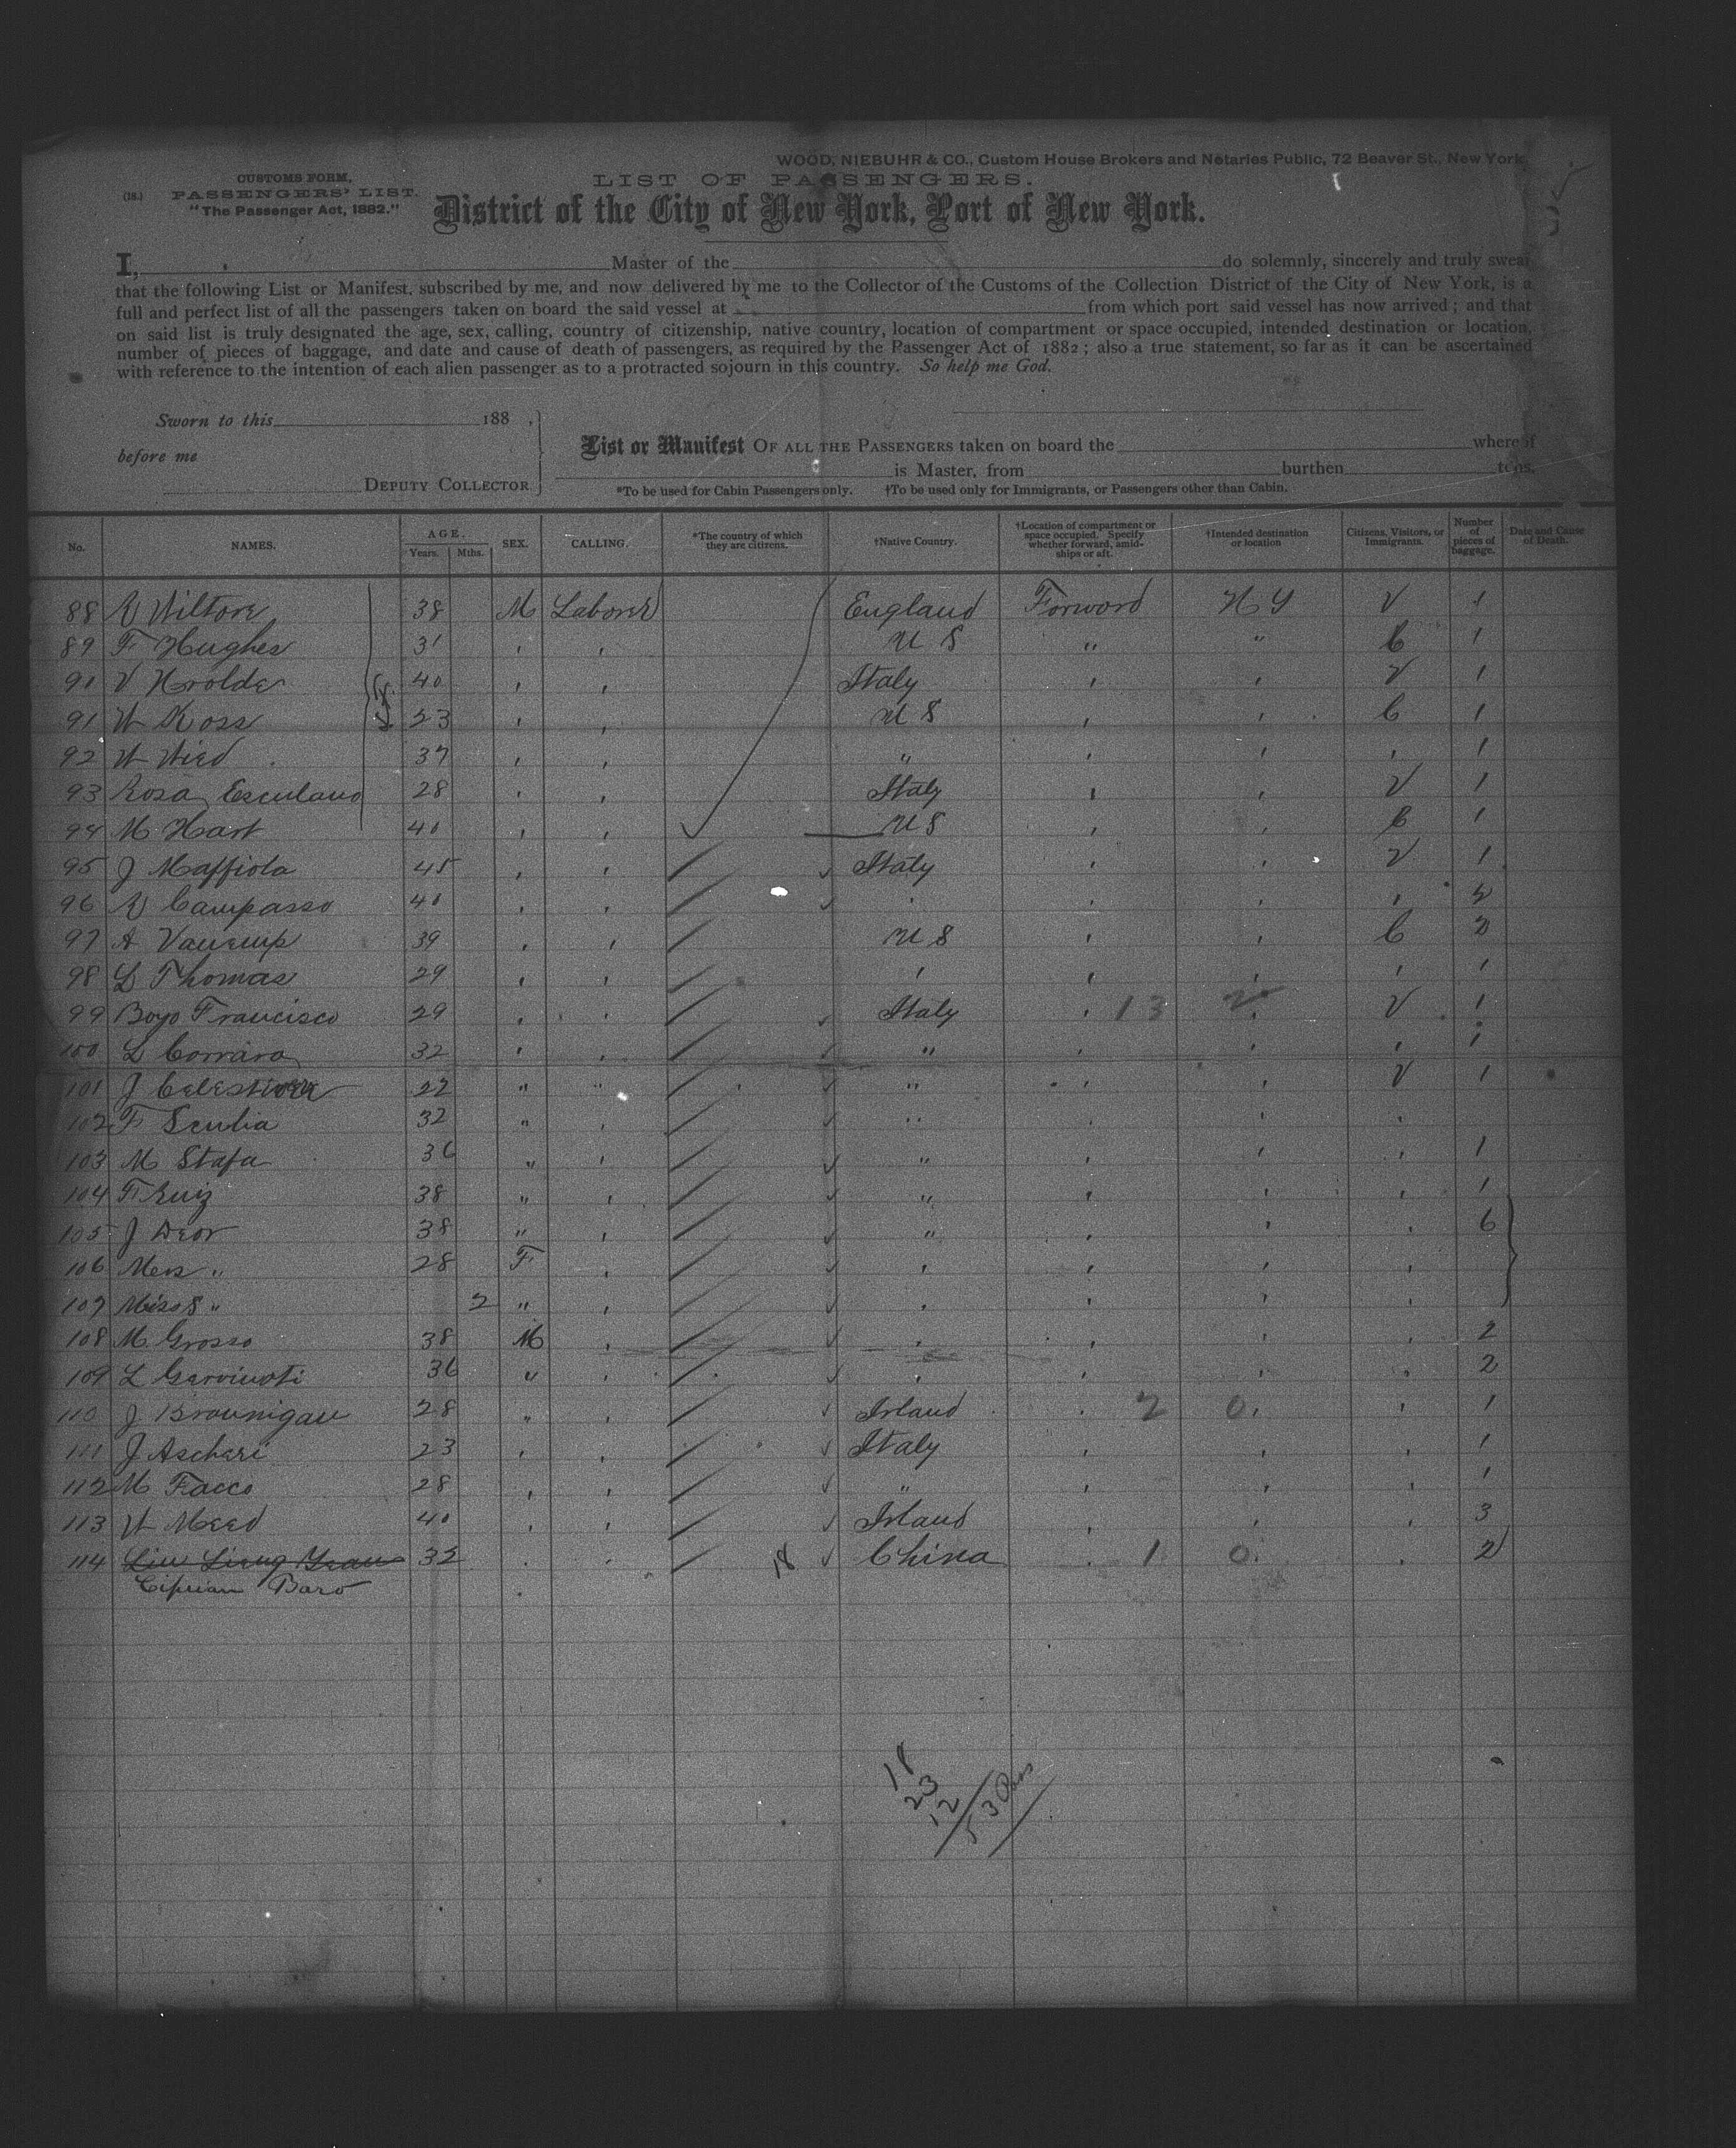 WOOD, NIEBUHR & CO., Custom House Brokers and Notaries Public, 72 Beaver St., New York.
(18.) CUSTOMS FORM, PASSENGERS' LIST. "The Passenger Act, 1882."
LIST OF PASSENGERS.
District of the City of New York, Port of New York.
I, Master of the do solemnly, sincerely and truly swear
that the following List or Manifest, subscribed by me, and now delivered by me to the Collector of the Customs of the Collection District of the City of New York, is a
full and perfect list of all the passengers taken on board the said vessel at from which port said vessel has now arrived; and that
on said list is truly designated the age, sex, calling, country of citizenship, native country, location of compartment or space occupied, intended destination or location,
number of pieces of baggage, and date and cause of death of passengers, as required by the Passenger Act of 1882; also a true statement, so far as it can be ascertained
with reference to the intention of each alien passenger as to a protracted sojourn in this country. So help me God.
Sworn to this 188 ,
before me
DEPUTY COLLECTOR
List or Manifest OF ALL THE PASSENGERS taken on board the whereof
is Master, from burthen tons.
*To be used for Cabin Passengers only. †To be used only for Immigrants, or Passengers other than Cabin.
No. NAMES. AGE. Years. Mths. SEX. CALLING. *The country of which they are citizens. †Native Country. †Location of compartment or space occupied. Specify whether forward, amidships or aft. †Intended destination or location Citizens, Visitors, or Immigrants. Number of pieces of baggage. Date and Cause of Death.
88 Wilton 38 M Laborer England Forword N Y V 1
89 F Hughes 31 ' ' U S " " C 1
91 V 40 ' ' Italy ' ' V 1
91 W Ross 23 ' ' U S ' ' C 1
92 W Wied 37 ' ' " ' ' ' 1
93 Rosa Esculano 28 ' ' Italy ' ' V 1
94 M Hart 40 ' ' U S ' ' C 1
95 J Maffiola 45 ' ' Italy ' ' V 1
96 Campasso 40 ' ' ' ' ' ' 2
97 A 39 ' ' U S ' ' C 2
98 L Thomas 29 ' ' ' ' ' ' 1
99 Boyo Francisco 29 ' ' Italy ' 13 2 ' V 1
100 L Corrara 32 ' ' " ' ' ' 1
101 J 22 " " " ' ' V 1
102 F Scubia 32 " ' " ' ' '
103 M Stafa 36 " ' " ' ' ' 1
104 F Ruiz 38 " ' " ' ' ' 1
105 J Deor 38 " ' " ' ' ' 6
106 Mers " 28 F ' ' ' ' '
107 Miss " 2 " ' ' ' ' '
108 M Grosso 38 M ' ' ' ' ' 2
109 L 36 " ' ' ' ' ' 2
110 J Brounigan 28 " ' Irland ' 2 0 ' ' 1
111 J Ascheri 23 ' ' Italy ' ' ' 1
112 M Facco 28 ' ' " ' ' ' 1
113 W Meed 40 ' ' Irland ' ' ' 3
114 32 ' ' 18 China ' 1 0 ' ' 2
Ciprian Baro
18
23
12
53 Pass